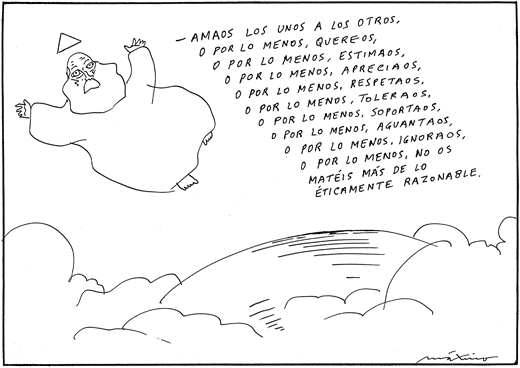 — AMAOS LOS UNOS A LOS OTROS,
O POR LO MENOS, QUEREOS,
O POR LO MENOS, ESTIMAOS,
O POR LO MENOS, APRECIAOS,
O POR LO MENOS, RESPETAOS,
O POR LO MENOS, TOLERAOS,
O POR LO MENOS, SOPORTAOS,
O POR LO MENOS, AGUANTAOS,
O POR LO MENOS, IGNORAOS,
O POR LO MENOS, NO OS
MATÉIS MÁS DE LO
ÉTICAMENTE RAZONABLE.
máximo